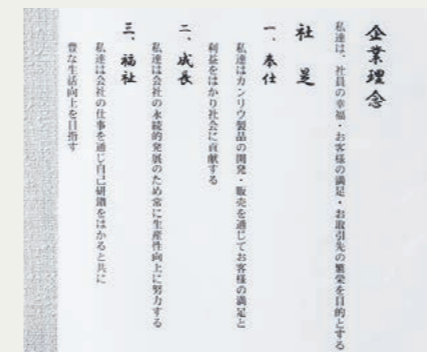 企業理念
私達は、社員の幸福・お客様の満足・お取引先の繁栄を目的とする
社是
一、奉仕
私達はカンリウ製品の開発・販売を通じてお客様の満足と
利益をはかり社会に貢献する
二、成長
私達は会社の永続的発展のため常に生産性向上に努力する
三、福祉
私達は会社の仕事を通じ自己研鑽をはかると共に
豊な生活向上を目指す